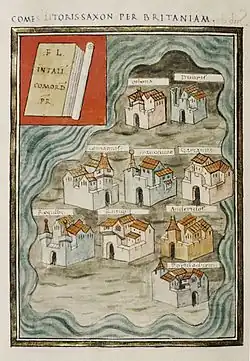 COMES LITORIS SAXON PER BRITANIAM.
FL
INTALL
COMORD
PR
Othona
Dubris
Lemannis
Branoduno
Garianno
Regulbi
Rutupis
Anderidos